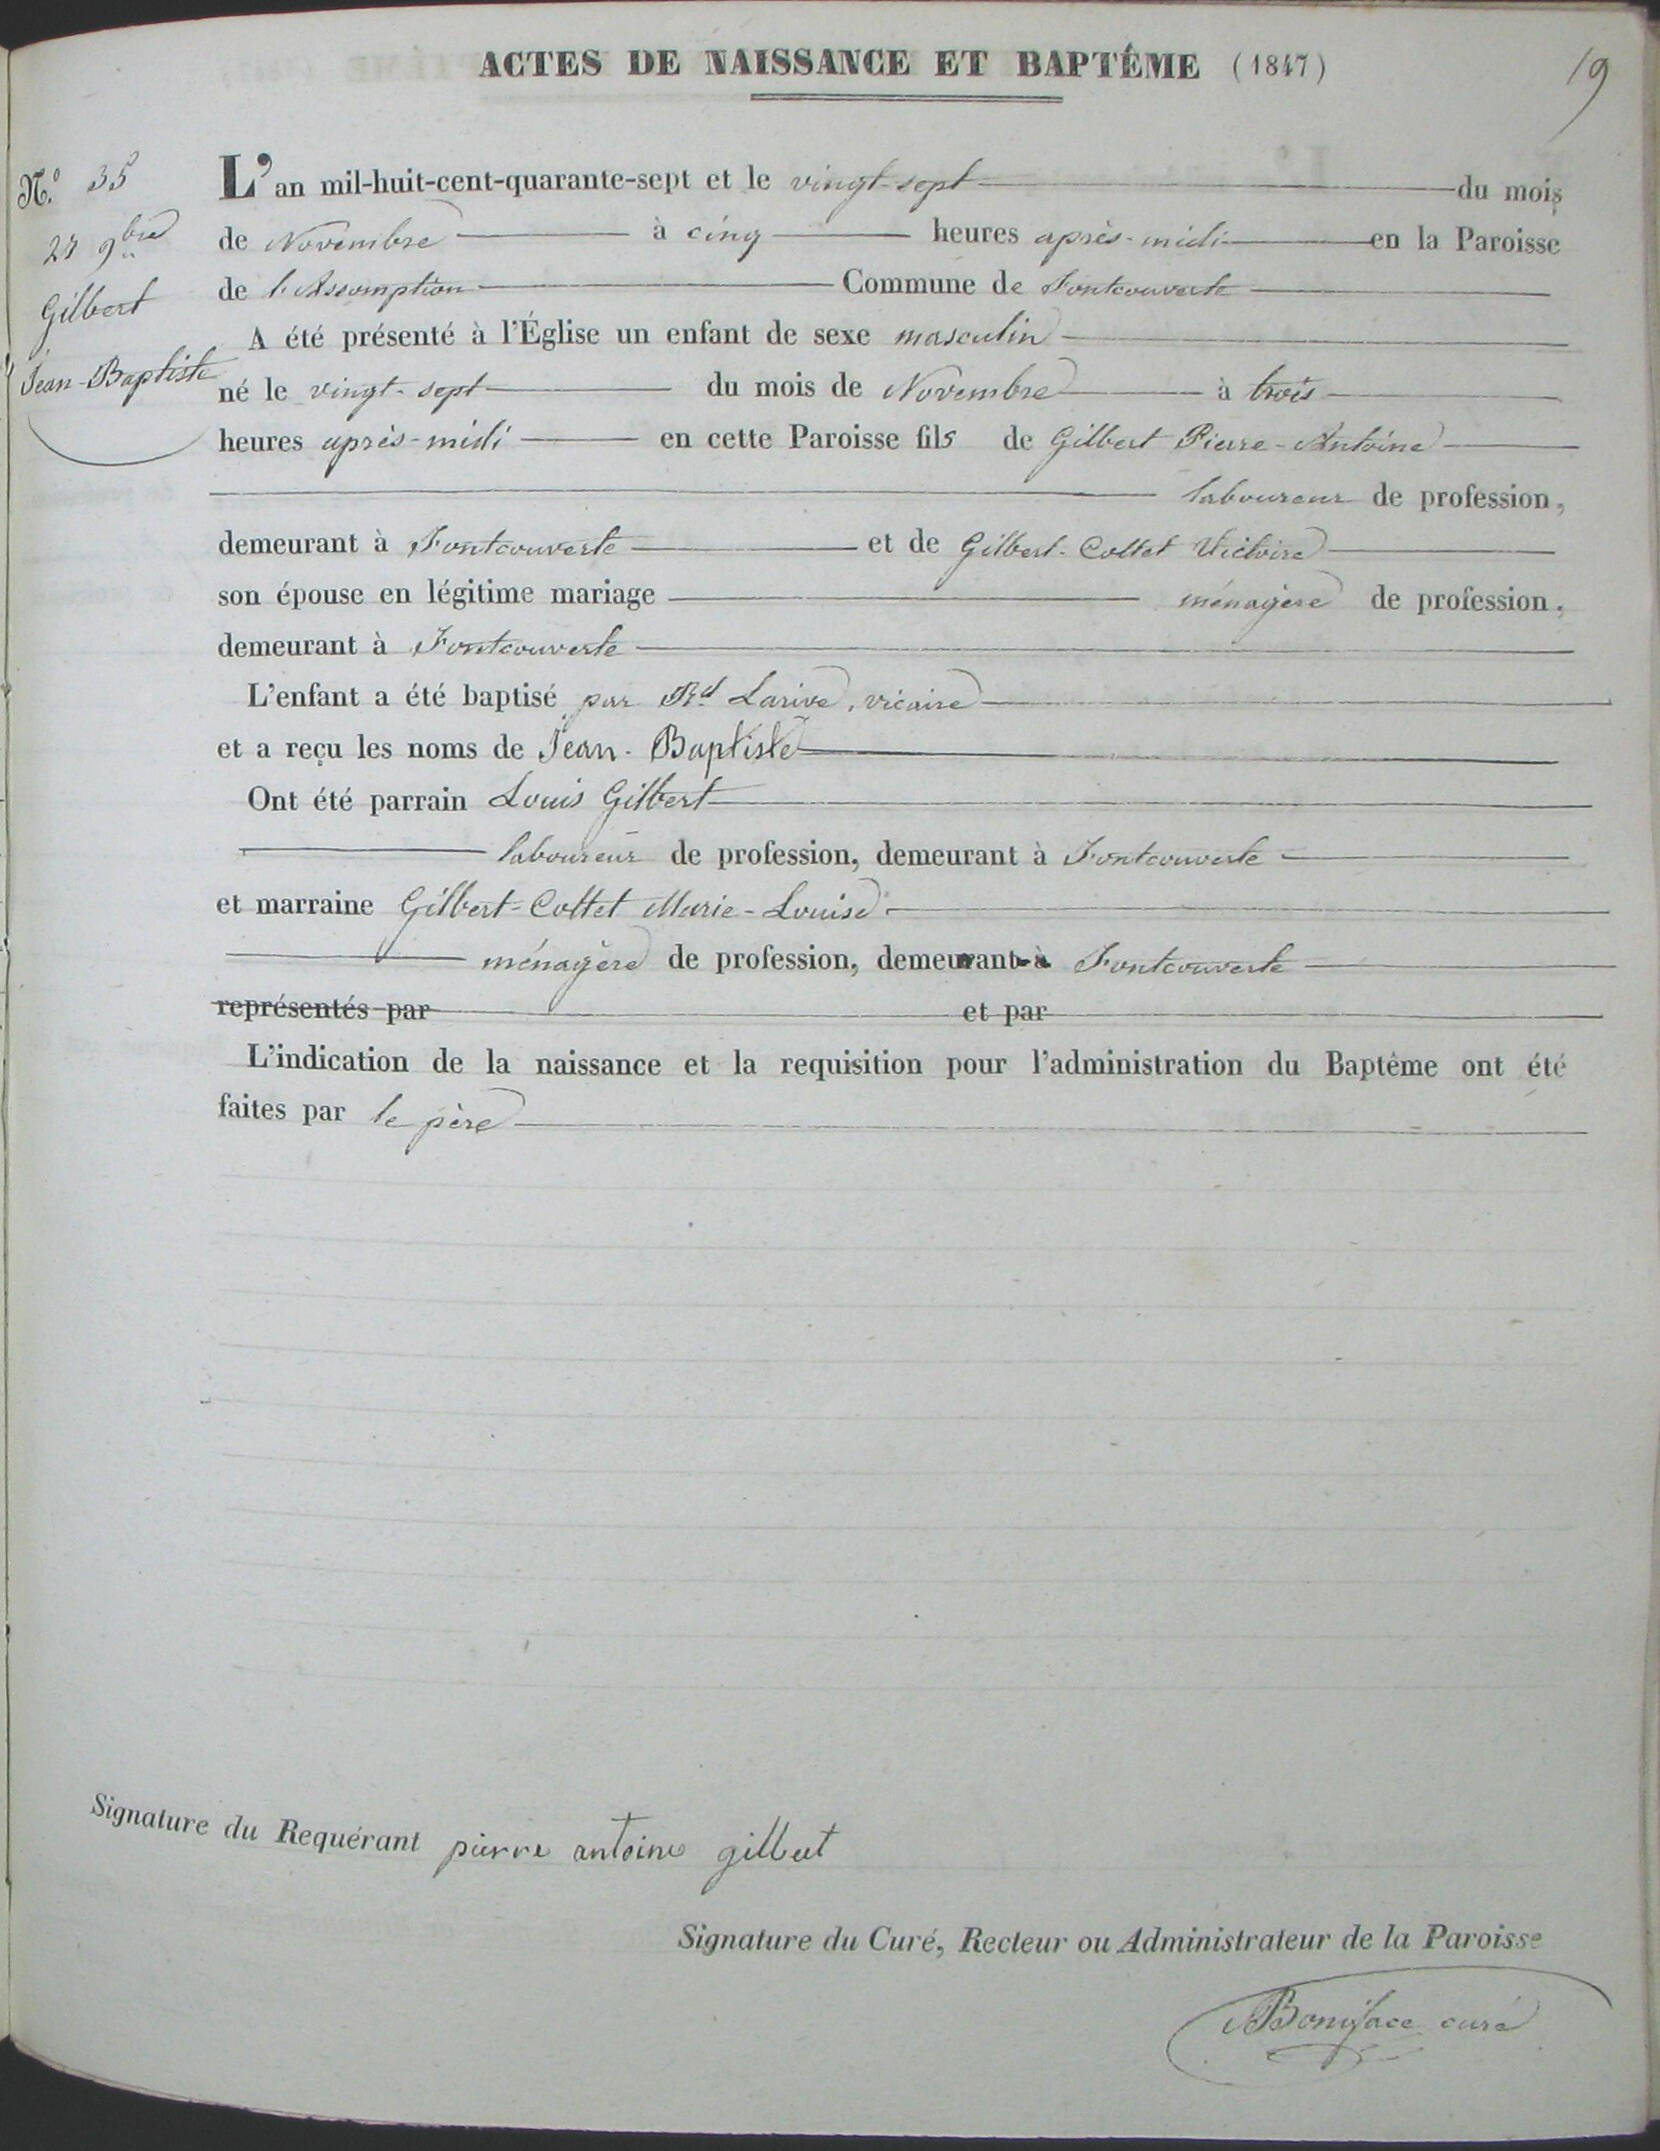 ACTES DE NAISSANCE ET BAPTÊME (1847)
19
N.º 35
27 9bre
Gilbert
Jean-Baptiste
L'an mil-huit-cent-quarante-sept et le vingt-sept du mois
de Novembre à cinq heures après-midi en la Paroisse
de l'Assomption Commune de Fontcouverte
A été présenté à l'Église un enfant de sexe masculin
né le vingt-sept du mois de Novembre à trois
heures après-midi en cette Paroisse fils de Gilbert Pierre-Antoine
laboureur de profession,
demeurant à Fontcouverte et de Gilbert-Collet Victoire
son épouse en légitime mariage ménagère de profession,
demeurant à Fontcouverte
L'enfant a été baptisé par Rd Larive, vicaire
et a reçu les noms de Jean-Baptiste
Ont été parrain Louis Gilbert
laboureur de profession, demeurant à Fontcouverte
et marraine Gilbert-Collet Marie-Louise
ménagère de profession, demeurant à Fontcouverte
représentés par et par
L'indication de la naissance et la requisition pour l'administration du Baptême ont été
faites par le père
Signature du Requérant pierre antoine gilbert
Signature du Curé, Recteur ou Administrateur de la Paroisse
Boniface curé